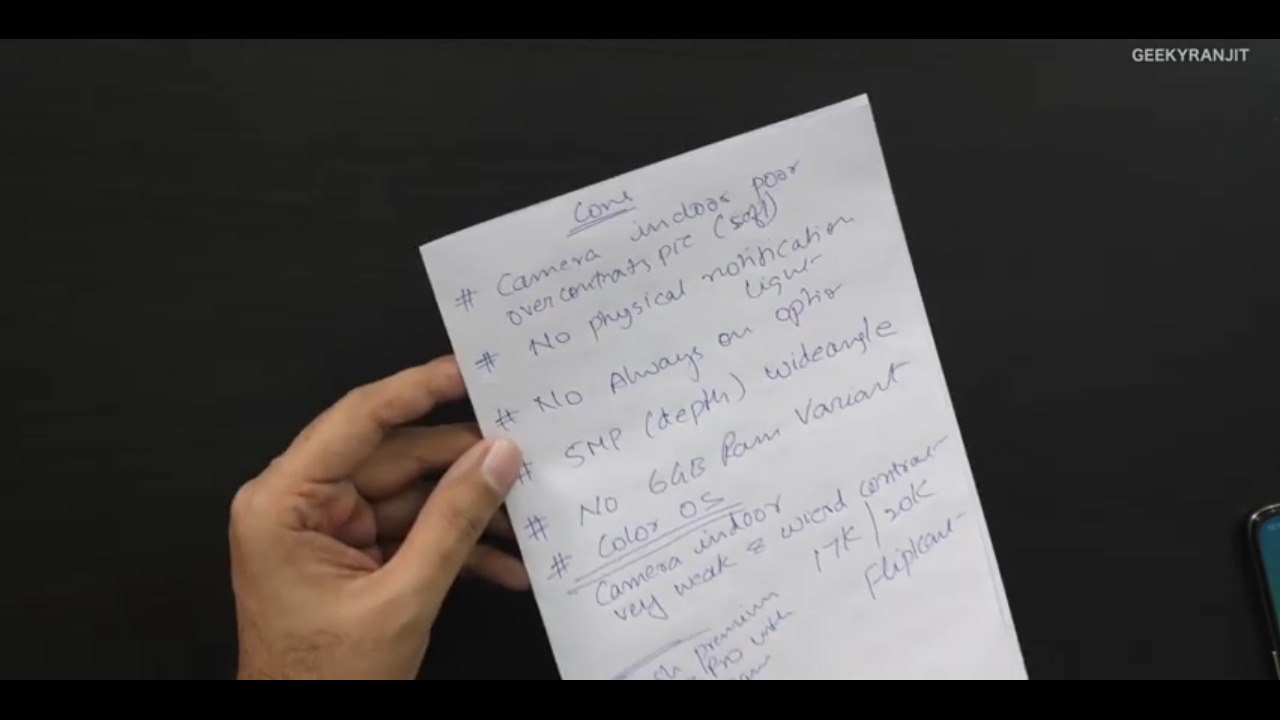 GEEKYRANJIT
Cons
# Camera indoor poor
over contrats pic (soft)
# No physical notification
light
# No Always on option
# 5MP (depth) wideangle
# No 6GB Ram Variant
# Color OS
Camera indoor
very weak & wierd contrast
17K / 20K
Flipkart
premium
Pro with